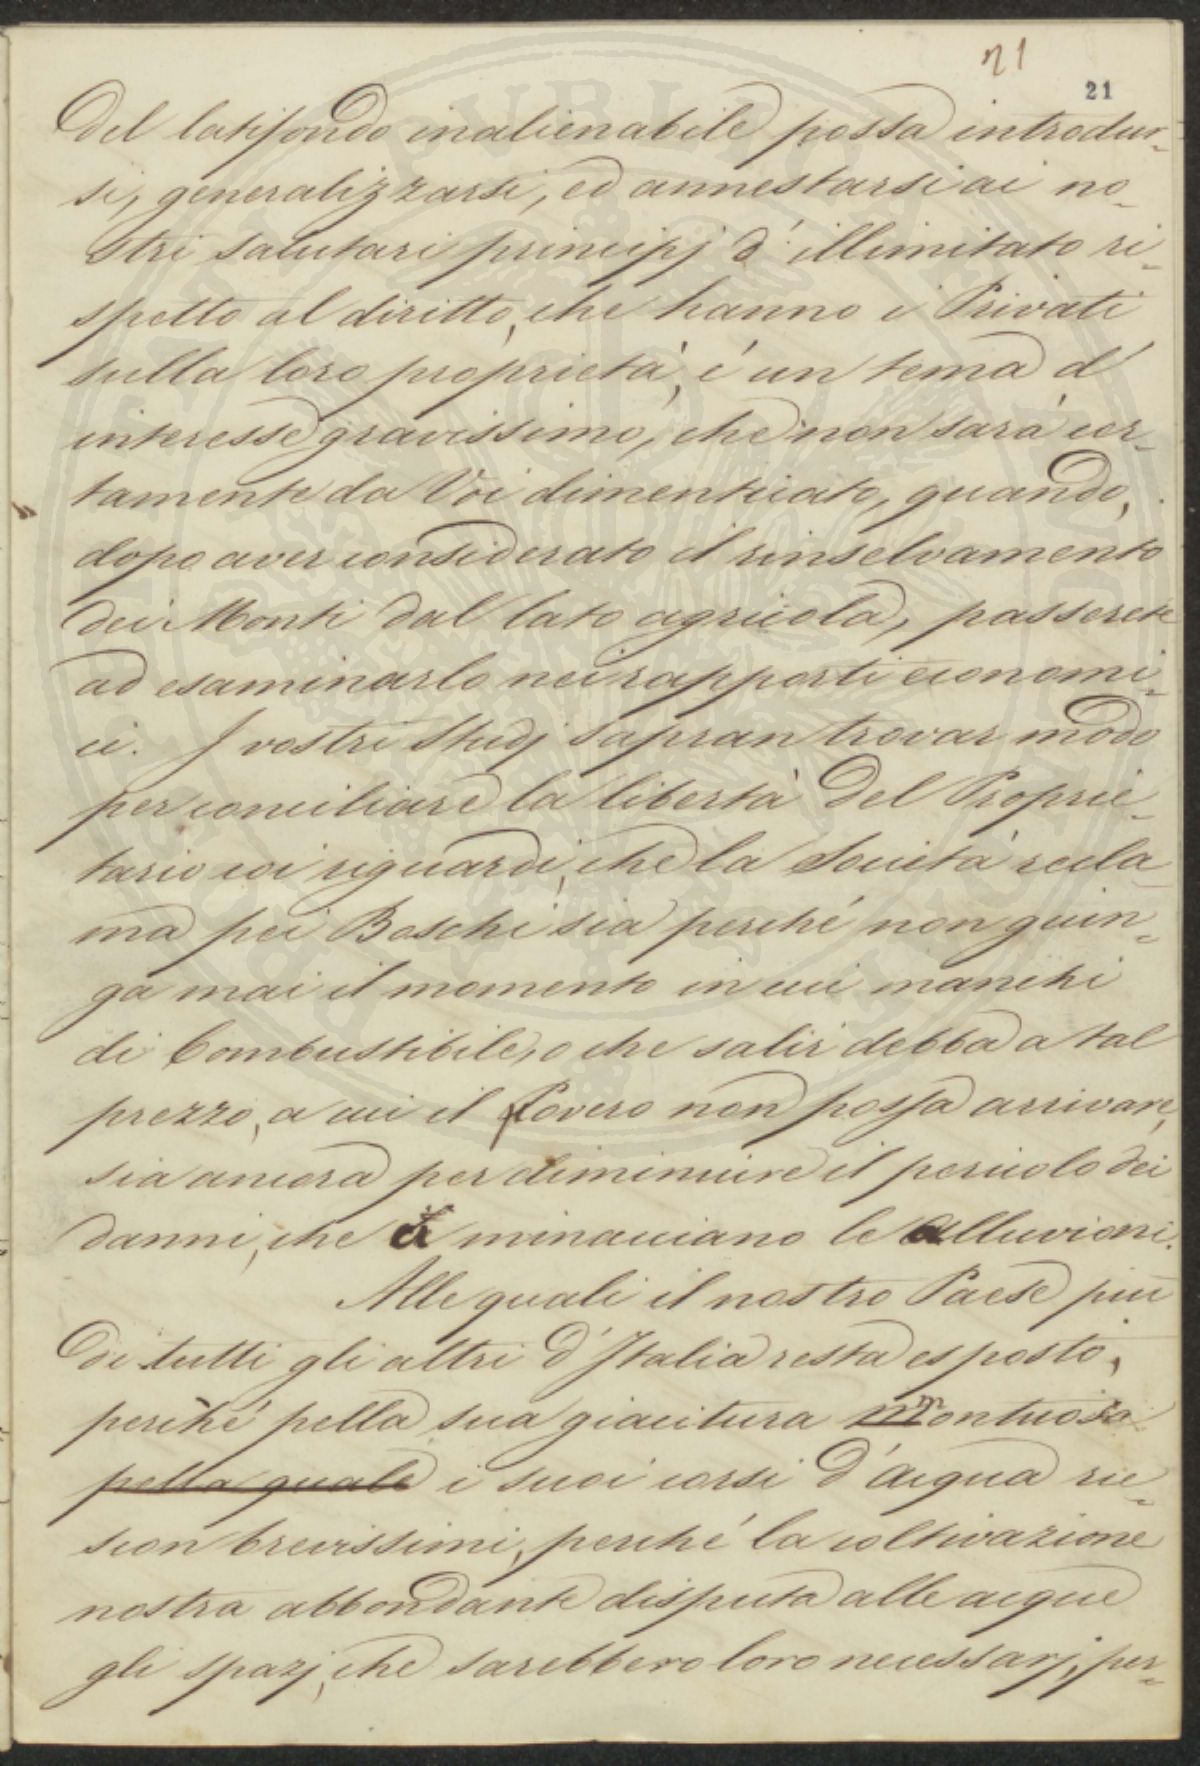 21
21
del latifondo inalienabile possa introdur-
si, generalizzarsi, ed annestarsi ai no-
stri salutari principj d'illimitato ri-
spetto al diritto, che hanno i Privati
sulla loro proprietà, é un tema d'
interesse gravissimo, che non sarà cer-
tamente da Voi dimenticato, quando,
dopo aver considerato il rinselvamento
dei Monti dal lato agricola, passerete
ad esaminarlo nei rapporti economi-
ci. I vostri Studj sapran trovar modo
per conciliare la libertà del Proprie-
tario coi riguardi, che la Società recla-
ma pei Boschi sia perché non giun-
ga mai il momento in cui manchi
di Combustibile, o che salir debba a tal
prezzo, a cui il Povero non possa arrivare,
sia ancora per diminuire il pericolo dei
danni, che ci minacciano le alluvioni.
Alle quali il nostro Paese più
di tutti gli altri d'Italia resta esposto,
perché pella sua giacitura montuosa
pella quale i suoi corsi d'acqua rie-
scon brevissimi, perché la coltivazione
nostra abbondante disputa alle acque
gli spazj, che sarebbero loro necessarj, per-